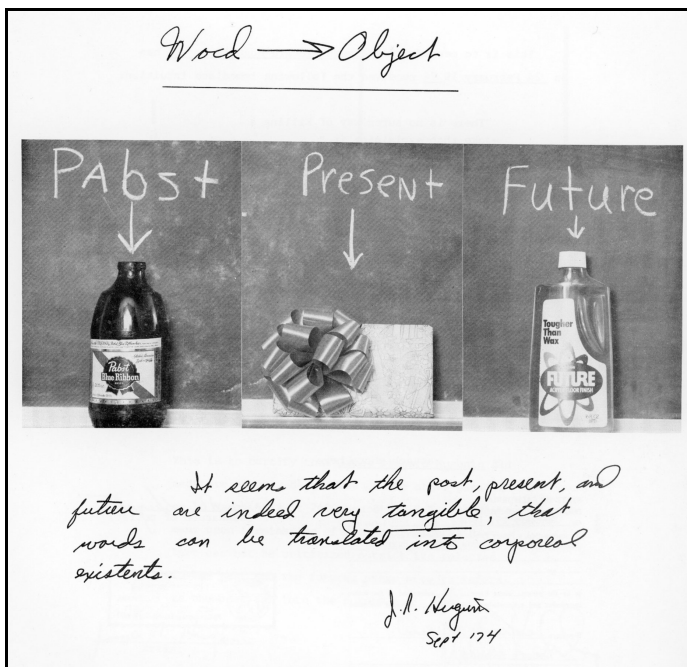 Word → Object
PAbst
Present
Future
Pabst
Blue Ribbon
Tougher
Than
Wax
FUTURE
ACRYLIC FLOOR FINISH
It seems that the past, present, and
future are indeed very tangible, that
words can be translated into corporeal
existents.
Sept 174